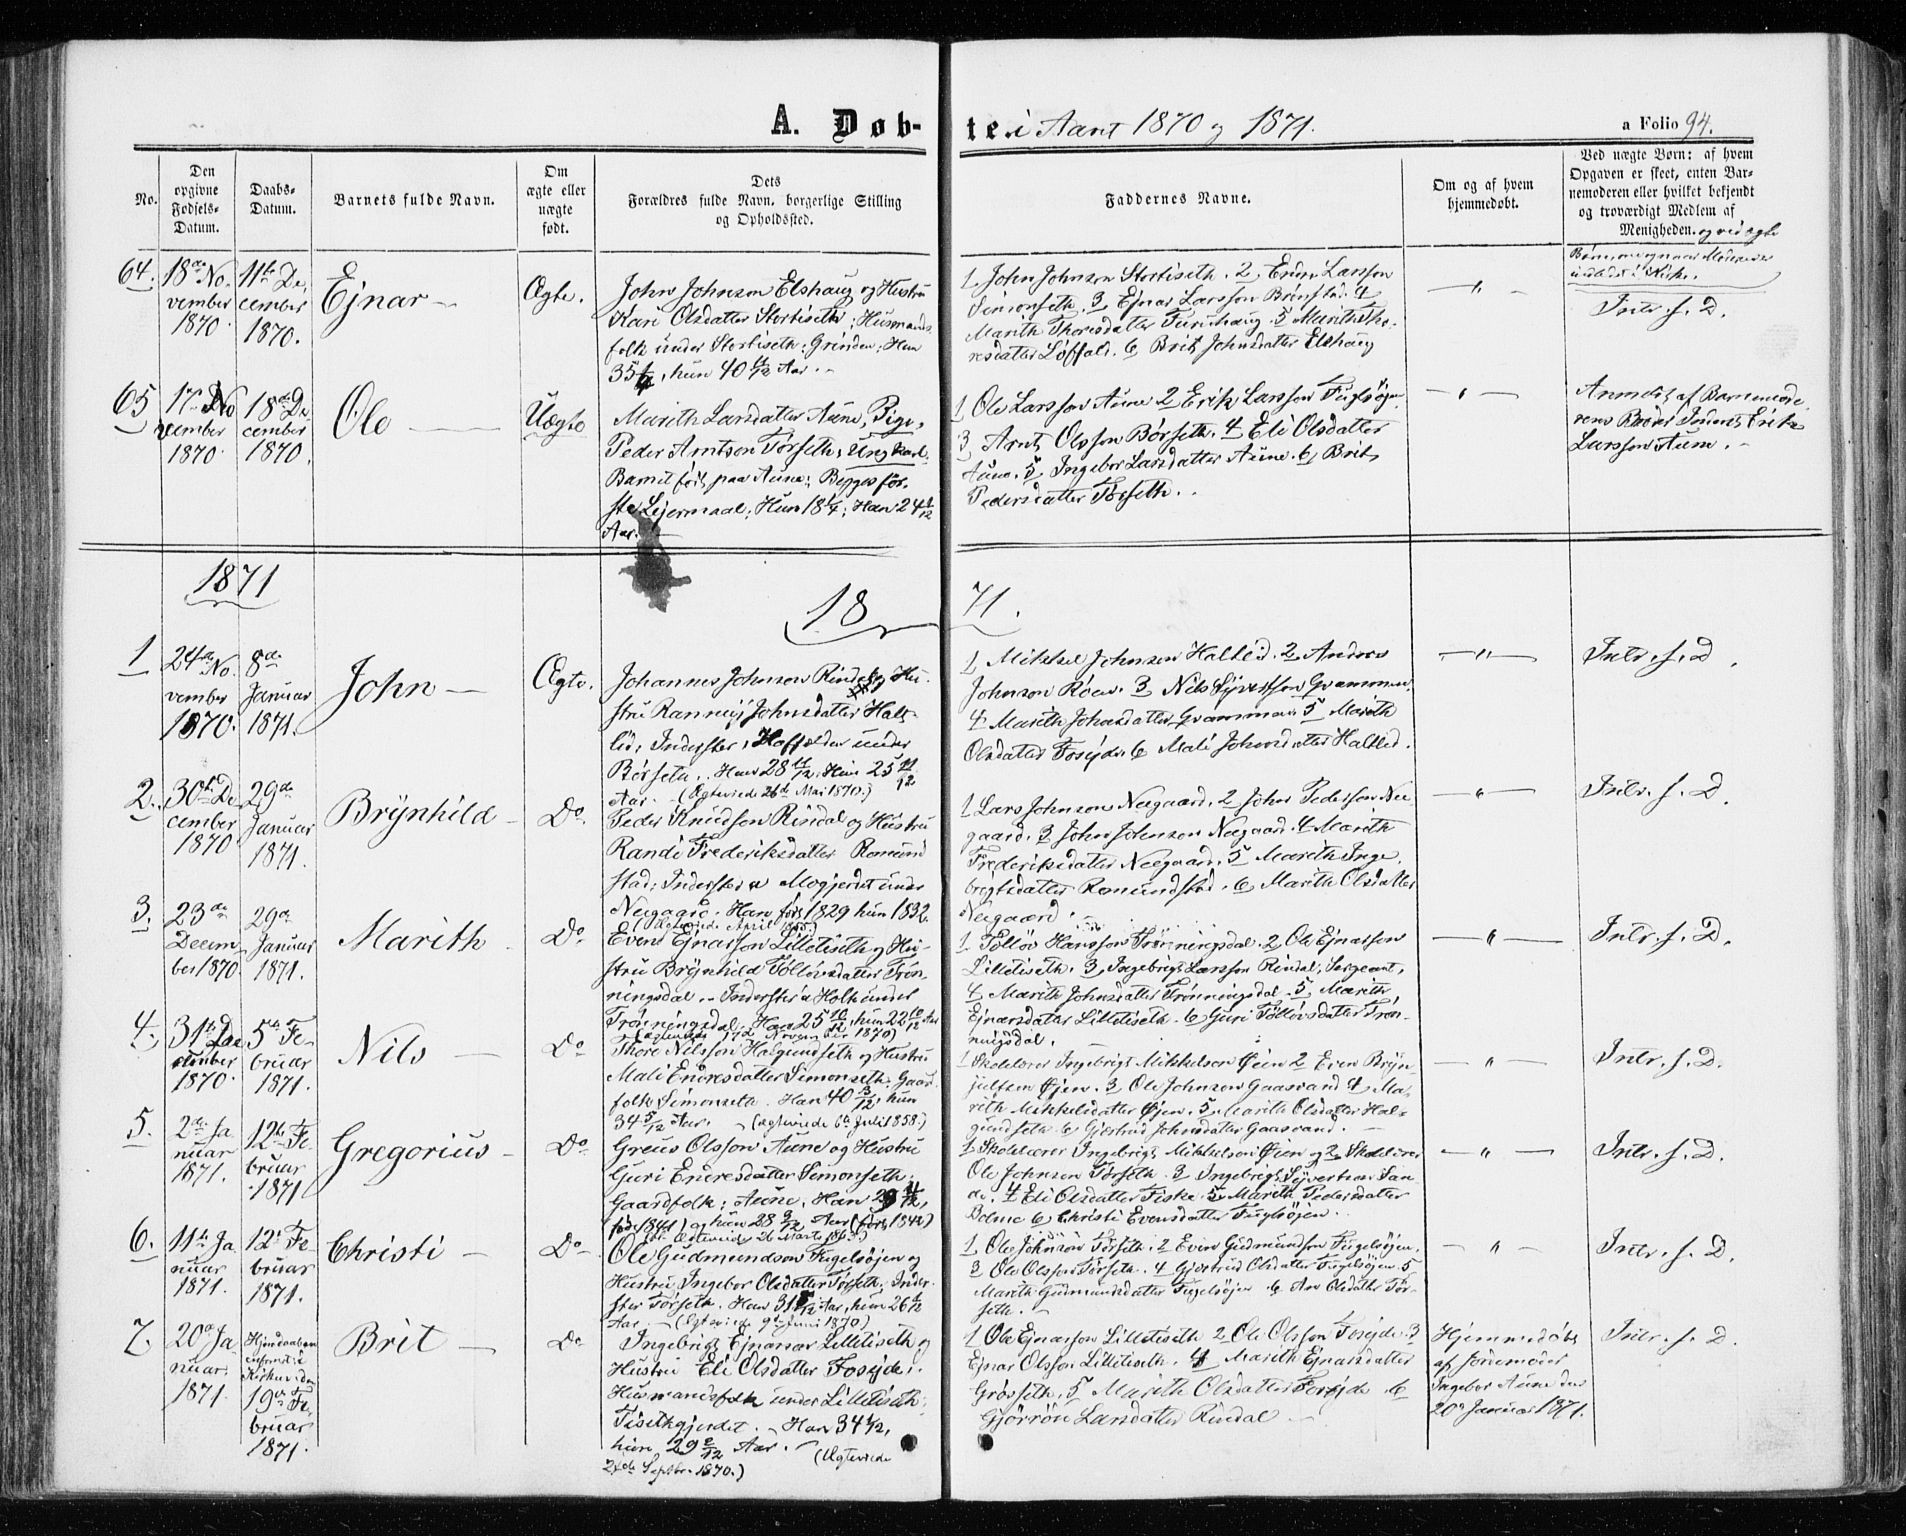 A. Døbte i Aaret 1870 og 1871.
a Folio 94.
No.
Den opgivne Fødsels-Datum.
Daabs-Datum.
Barnets fulde Navn.
Om ægte eller uægte født.
Dets Forældres fulde Navn, borgerlige Stilling og Opholdssted.
Faddernes Navne.
Om og af hvem hjemmedøbt.
Ved uægte Børn: af hvem Opgaven er skeet, enten Barnemoderen eller hvilket bekjendt og troværdigt Medlem af Menigheden. og ved ægte
64.
18de November 1870.
11te December 1870.
Ejnar
Ægte.
John Johnson Elshaug og Hustru
Kari Olsdatter Stortiseth; Husmands-
folk under Stortiseth; Grinden; Han
hun 40 Aar.
1 John Johnson Stortiseth. 2 Endre Larsson
Simonseth. 3 Ejnar Larsson Brønstad. 4
Marith Thoresdatter Furuhaug. 5 Marith Tho-
resdatter Løfald. 6 Brit Johnsdatter Elshaug
Intr. f. D.
65
17de November 1870
18de December 1870.
Ole
Uægte
Marith Larsdatter Aune, Pige,
Peder Arntson Tørseth, Ungkarl
Barnet født paa Aune; Begges før-
ste Lejermaal; Hun 18 1/4; Han 24
Aar.
1 Ole Larsson Aune 2 Erik Larsson Fuglsøjen
3 Arnt Olsson Børseth. 4 Eli Olsdatter
Aune. 5 Ingebor Larsdatter Aune. 6 Brit
Pedersdatter Tørseth.
Anmeldt af Barnemode-
rens Broder Erik
Larsson Aune.
1871
1871.
1
24de November 1870.
8de Januar 1871.
John
Ægte.
Johannes Johnson Rindal og Hu-
stru Rannej Johnsdatter Halt-
lid; Inderster, Hoffolden under
Børseth. Han 28 11/12, Hun 25 11/12
Aar. (Ægteviede 26de Mai 1870.)
1 Mikkel Johnson Haltlid. 2 Anders
Johnson Røen. 3 Nils Syversson Grammen.
4 Marith Johnsdatter Grammen. 5 Marith
Olsdatter Fosejde. 6 Mali Johnsdatter Haltlid.
Intr. f. D.
2.
30te December 1870
29de Januar 1871.
Brynhild
Do.
Peder Knudson Rindal og Hustru
Randi Frederiksdatter Romund-
stad; Inderster Mogjerdet under
Neegaard. Han født 1829 hun 1832.
1 Lars Johnson Neegaard. 2 John Pederson Nee-
gaard. 3 John Johnson Neegaard. 4 Marith
Frederiksdatter Neegaard. 5 Marith Inge-
brigtsdatter Romundstad. 6 Marith Olsdatter
Neegaard.
Intr. f. D.
3.
23de December 1870
29de Januar 1871.
Marith
Do
Even Ejnarsson Lilletiseth og Hu-
stru Brynhild Tølløvsdatter Trøn-
ningsdal. Inderster Holt under
Trønningsdal. Han 25 10/12, hun 22 Aar
(Ægteviede 17de November 1870)
1 Tølløv Hansson Trønningsdal. 2 Ole Ejnarsson
Lilletiseth. 3 Ingebrigt Larsson Rindal, Sergeant.
4 Marith Johnsdatter Trønningsdal. 5 Marith
Ejnarsdatter Lilletiseth. 6 Guri Tølløvsdatter Trøn-
ningsdal.
Intr. f. D.
4.
31te December 1870.
5te Februar 1871.
Nils
Do
Thore Nilsson Halgundseth og Hustru
Mali Endresdatter Simonseth. Gaard-
folk Simonseth. Han 40 3/12, hun
34 5/12 Aar. (Ægteviede 6te Juli 1858.)
1 Skolelærer Ingebrigt Mikkelson Øien 2 Even Bryn-
julfsen Øjen. 3 Ole Johnson Gaasvand 4 Ma-
rith Mikkelsdatter Øjen. 5 Marith Olsdatter Hal-
gundseth. 6 Gjertrud Johnsdatter Gaasvand.
Intr. f. D.
5.
2den Januar 1871.
12te Februar 1871
Gregorius
Do
Greus Olsson Aune og Hustru
Guri Endresdatter Simonseth.
Gaardfolk; Aune. Han
født 1841) og hun 28 Aar (født 1842)
1 Skolelærer Ingebrigt Mikkelson Øien og 2 Skolelærer
Ole Johnson Tørseth. 3 Ingebrigt Syvertsen San-
de. 4 Eli Olsdatter Fiske. 5 Marith Pedersdatter
Bolme 6 Christi Evensdatter Fuglsøjen.
Intr. f. D.
6.
11te Januar 1871.
12te Februar 1871.
Christi
Do
Ole Gudmundson Fugelsøjen og
Hustru Ingebor Olsdatter Tørseth; Inder-
ster Tørseth. Han 31 Aar, hun 26
Aar. (Ægteviede 9de Juni 1870)
1 Ole Johnson Tørseth. 2 Even Gudmundson Fugelsøjen.
3 Ole Olsson Tørseth. 4 Gjertrud Olsdatter Fugelsøjen. 5
Marith Gudmundsdatter Fugelsøjen 6 An Olsdatter Tør-
seth.
Intr. f. D.
7.
20de Januar 1871.
Hjemdaaben i Kirken den 19de Februar 1871.
Brit
Do
Ingebrigt Ejnarson Lilletiseth og
Hustru Eli Olsdatter Fosejde;
Husmandsfolk under Lilletiseth;
Tisethgjerdet. Han 34 1/2,
hun 29 Aar. (Ægteviede
Septbr. 1870.)
1 Ole Ejnarson Lilletiseth 2 Ole Olsson Fosejde 3
Ejnar Olsson Lilletiseth. 4 Marith Ejnarsdatter
Grøsseth. 5 Marith Olsdatter Fosejde 6
Gjørrøn Larsdatter Rindal
Hjemmedøbt
af Jordemoder
Ingebor Aune den
20de Januar 1871.
Intr. f. D.